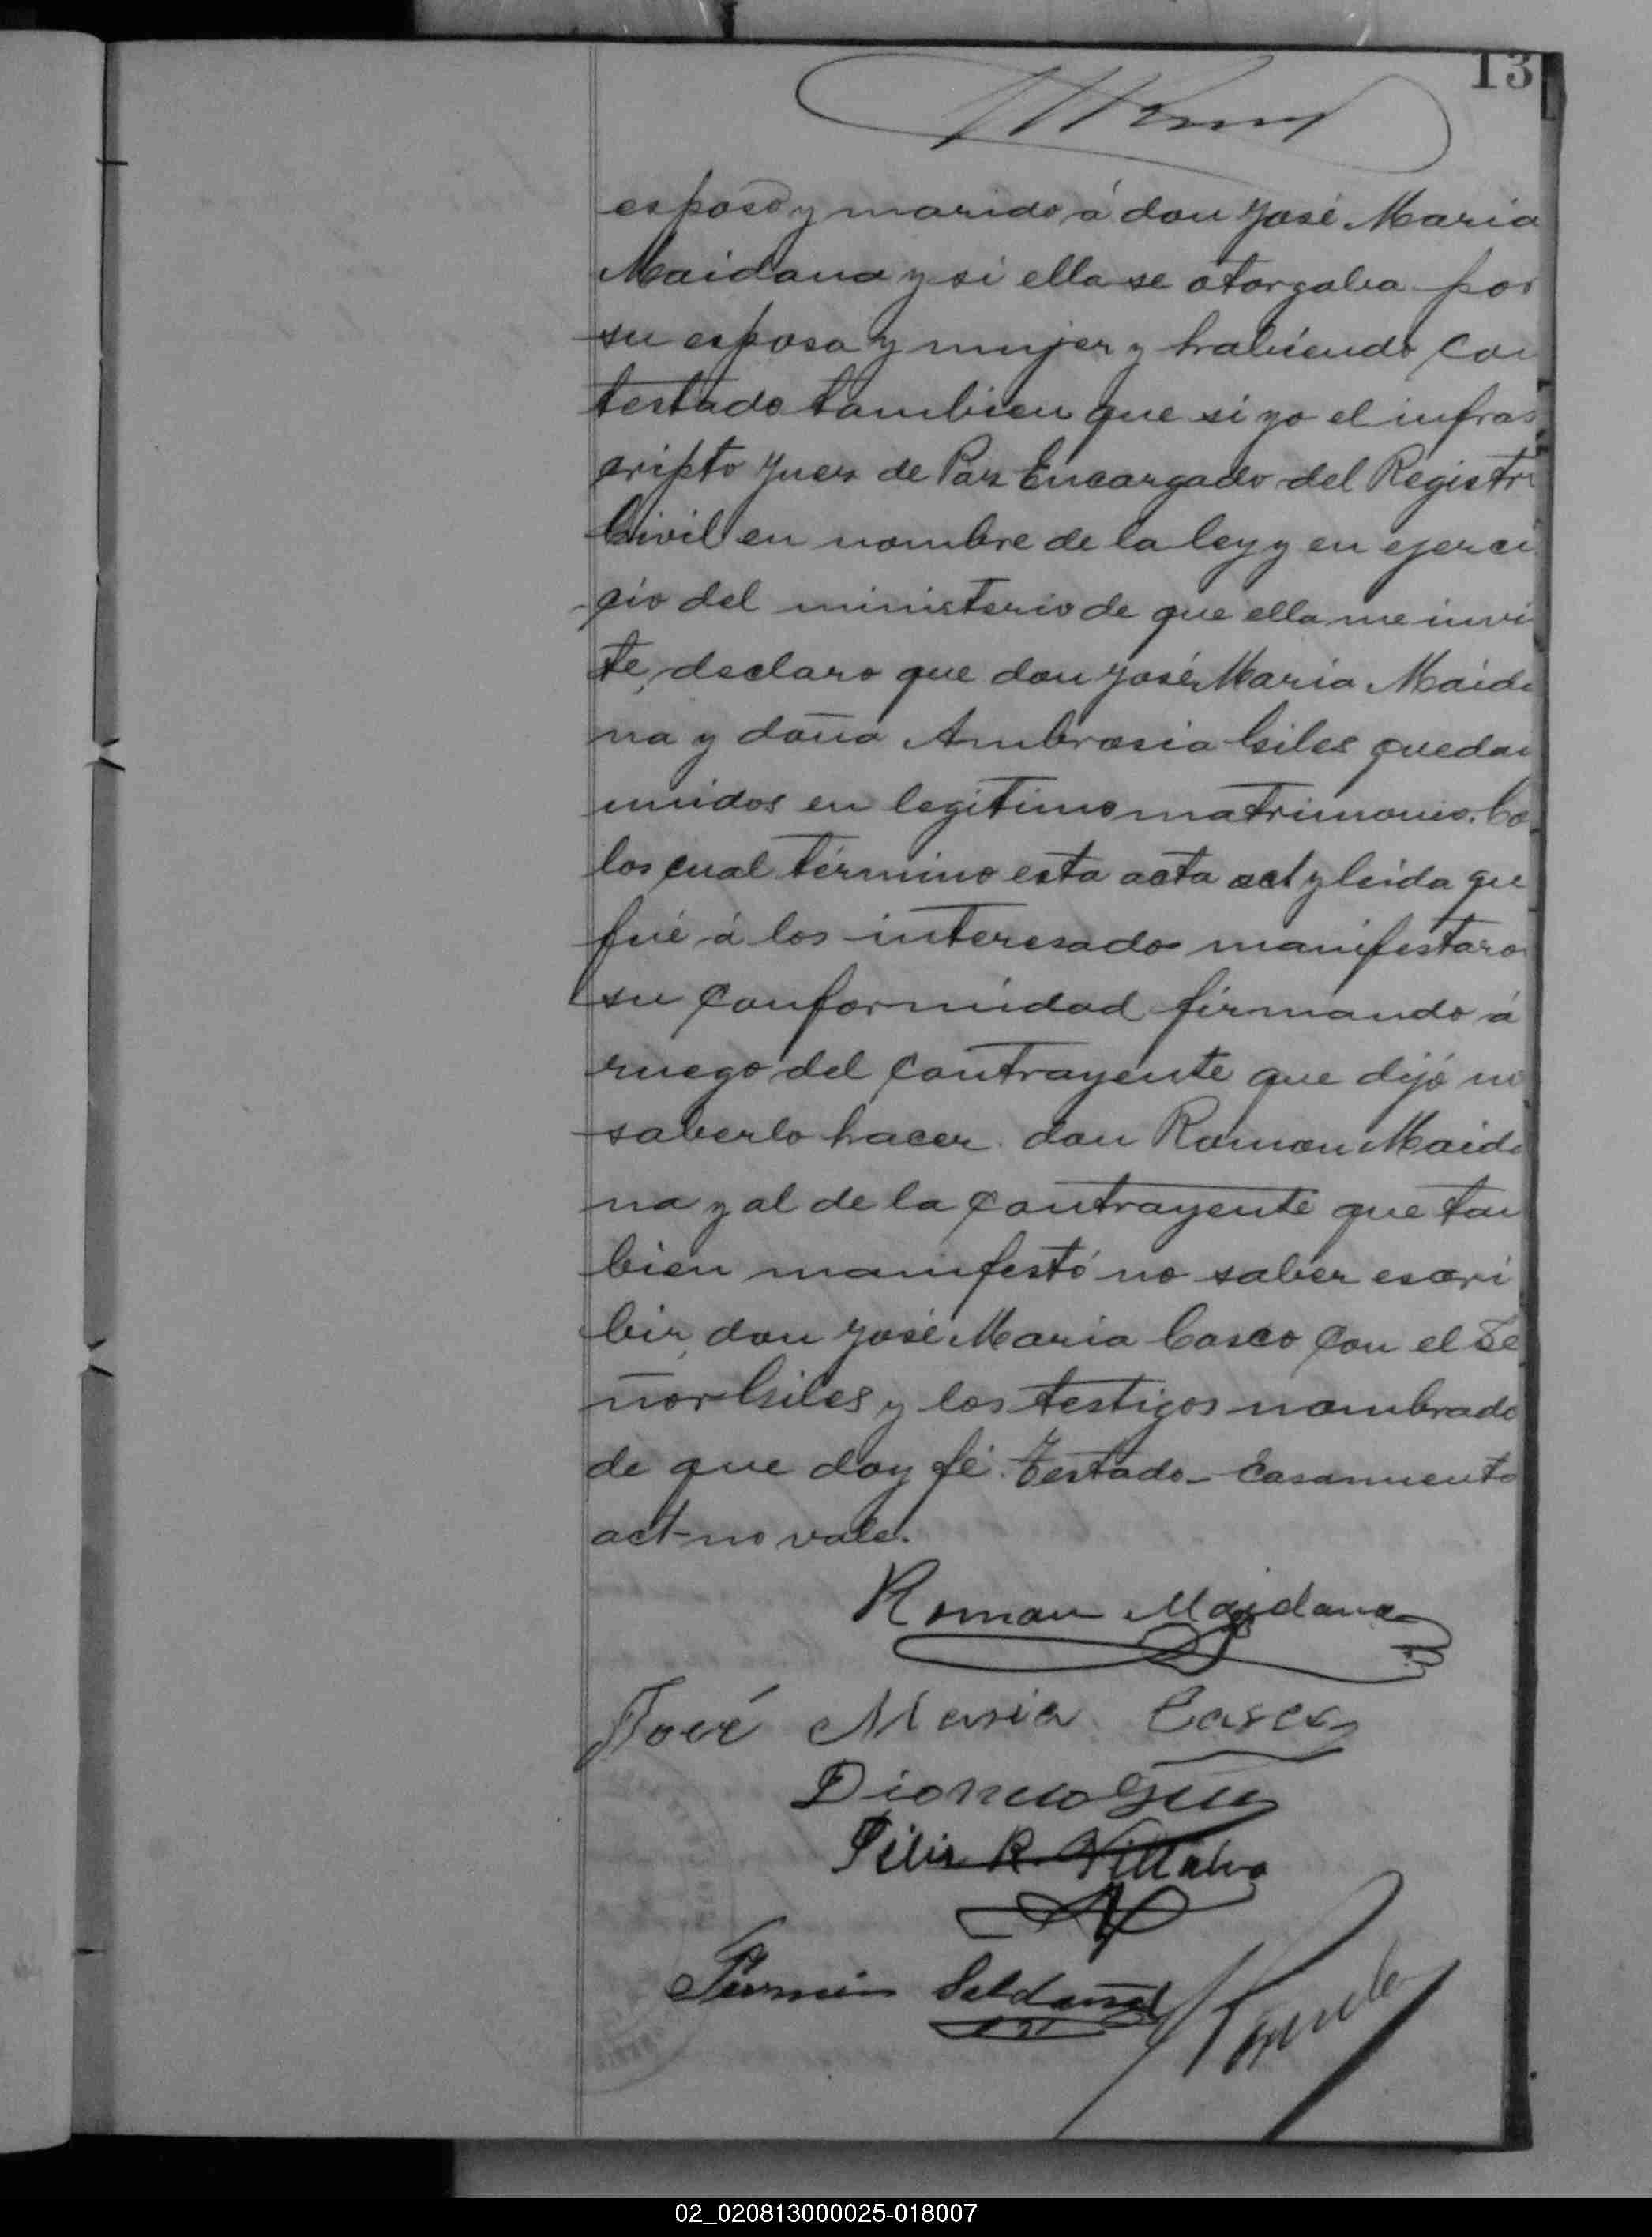 13
esposo y marido á don José Maria
Maidana y si ella se otorgaba por
su esposa y mujer y habiendo con
testado tambien que si yo el infras
cripto Juez de Paz Encargado del Registro
Civil en nombre de la ley y en ejerci
cio del ministerio de que ella me invis
te, declaro que don José Maria Maida
na y doña Ambrosia Giles quedan
unidos en legítimo matrimonio. Con
los cual término esta acta act y leida que
fué á los interesados manifestaron
su conformidad firmando á
ruego del contrayente que dijó no
saberlo hacer don Roman Maida
na y al de la contrayente que tam
bien manifestó no saber escri
bir, don José Maria Casco con el Se
ñor Giles y los testigos nombrado
de que doy fé. Testado- Casamiento
act- no vale.
Roman Maidana
José Maria Casco
Dionicio Giles
Felix R. Villalva
Fermin Saldaña
02_020813000025-018007